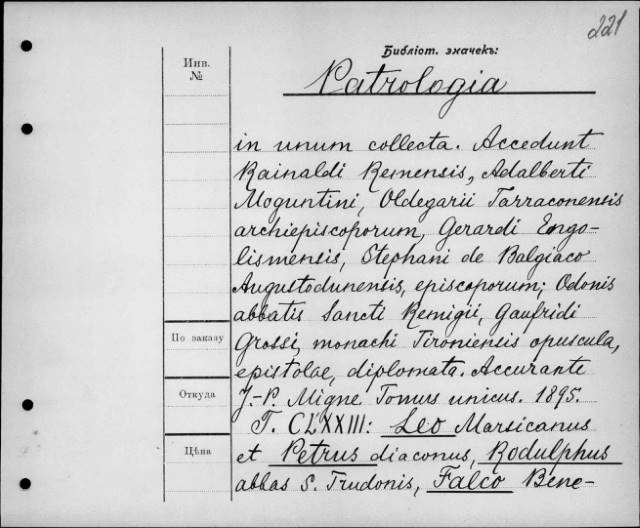 221
Библіот. значекъ:
Инв.
№
Patrologia
in unum collecta. Accedunt
Rainaldi Remensis, Adalberti
Moguntini, Oldegarii Tarraconensis
archiepiscoporum, Gerardi Engo-
lismensis, Stephani de Balgiaco
Augustodunensis, episcoporum; Odonis
abbatis Sancti Remigii, Gaufridi
По заказу
Grossi, monachi Tironiensis opuscula,
epistolae, diplomata. Accurante
Откуда
J.-P. Migne Tomus unicus. 1895.
T. CLXXIII: Leo Marsicanus
Цѣна
et Petrus diaconus, Rodulphus
abbas S. Trudonis, Falco Bene-